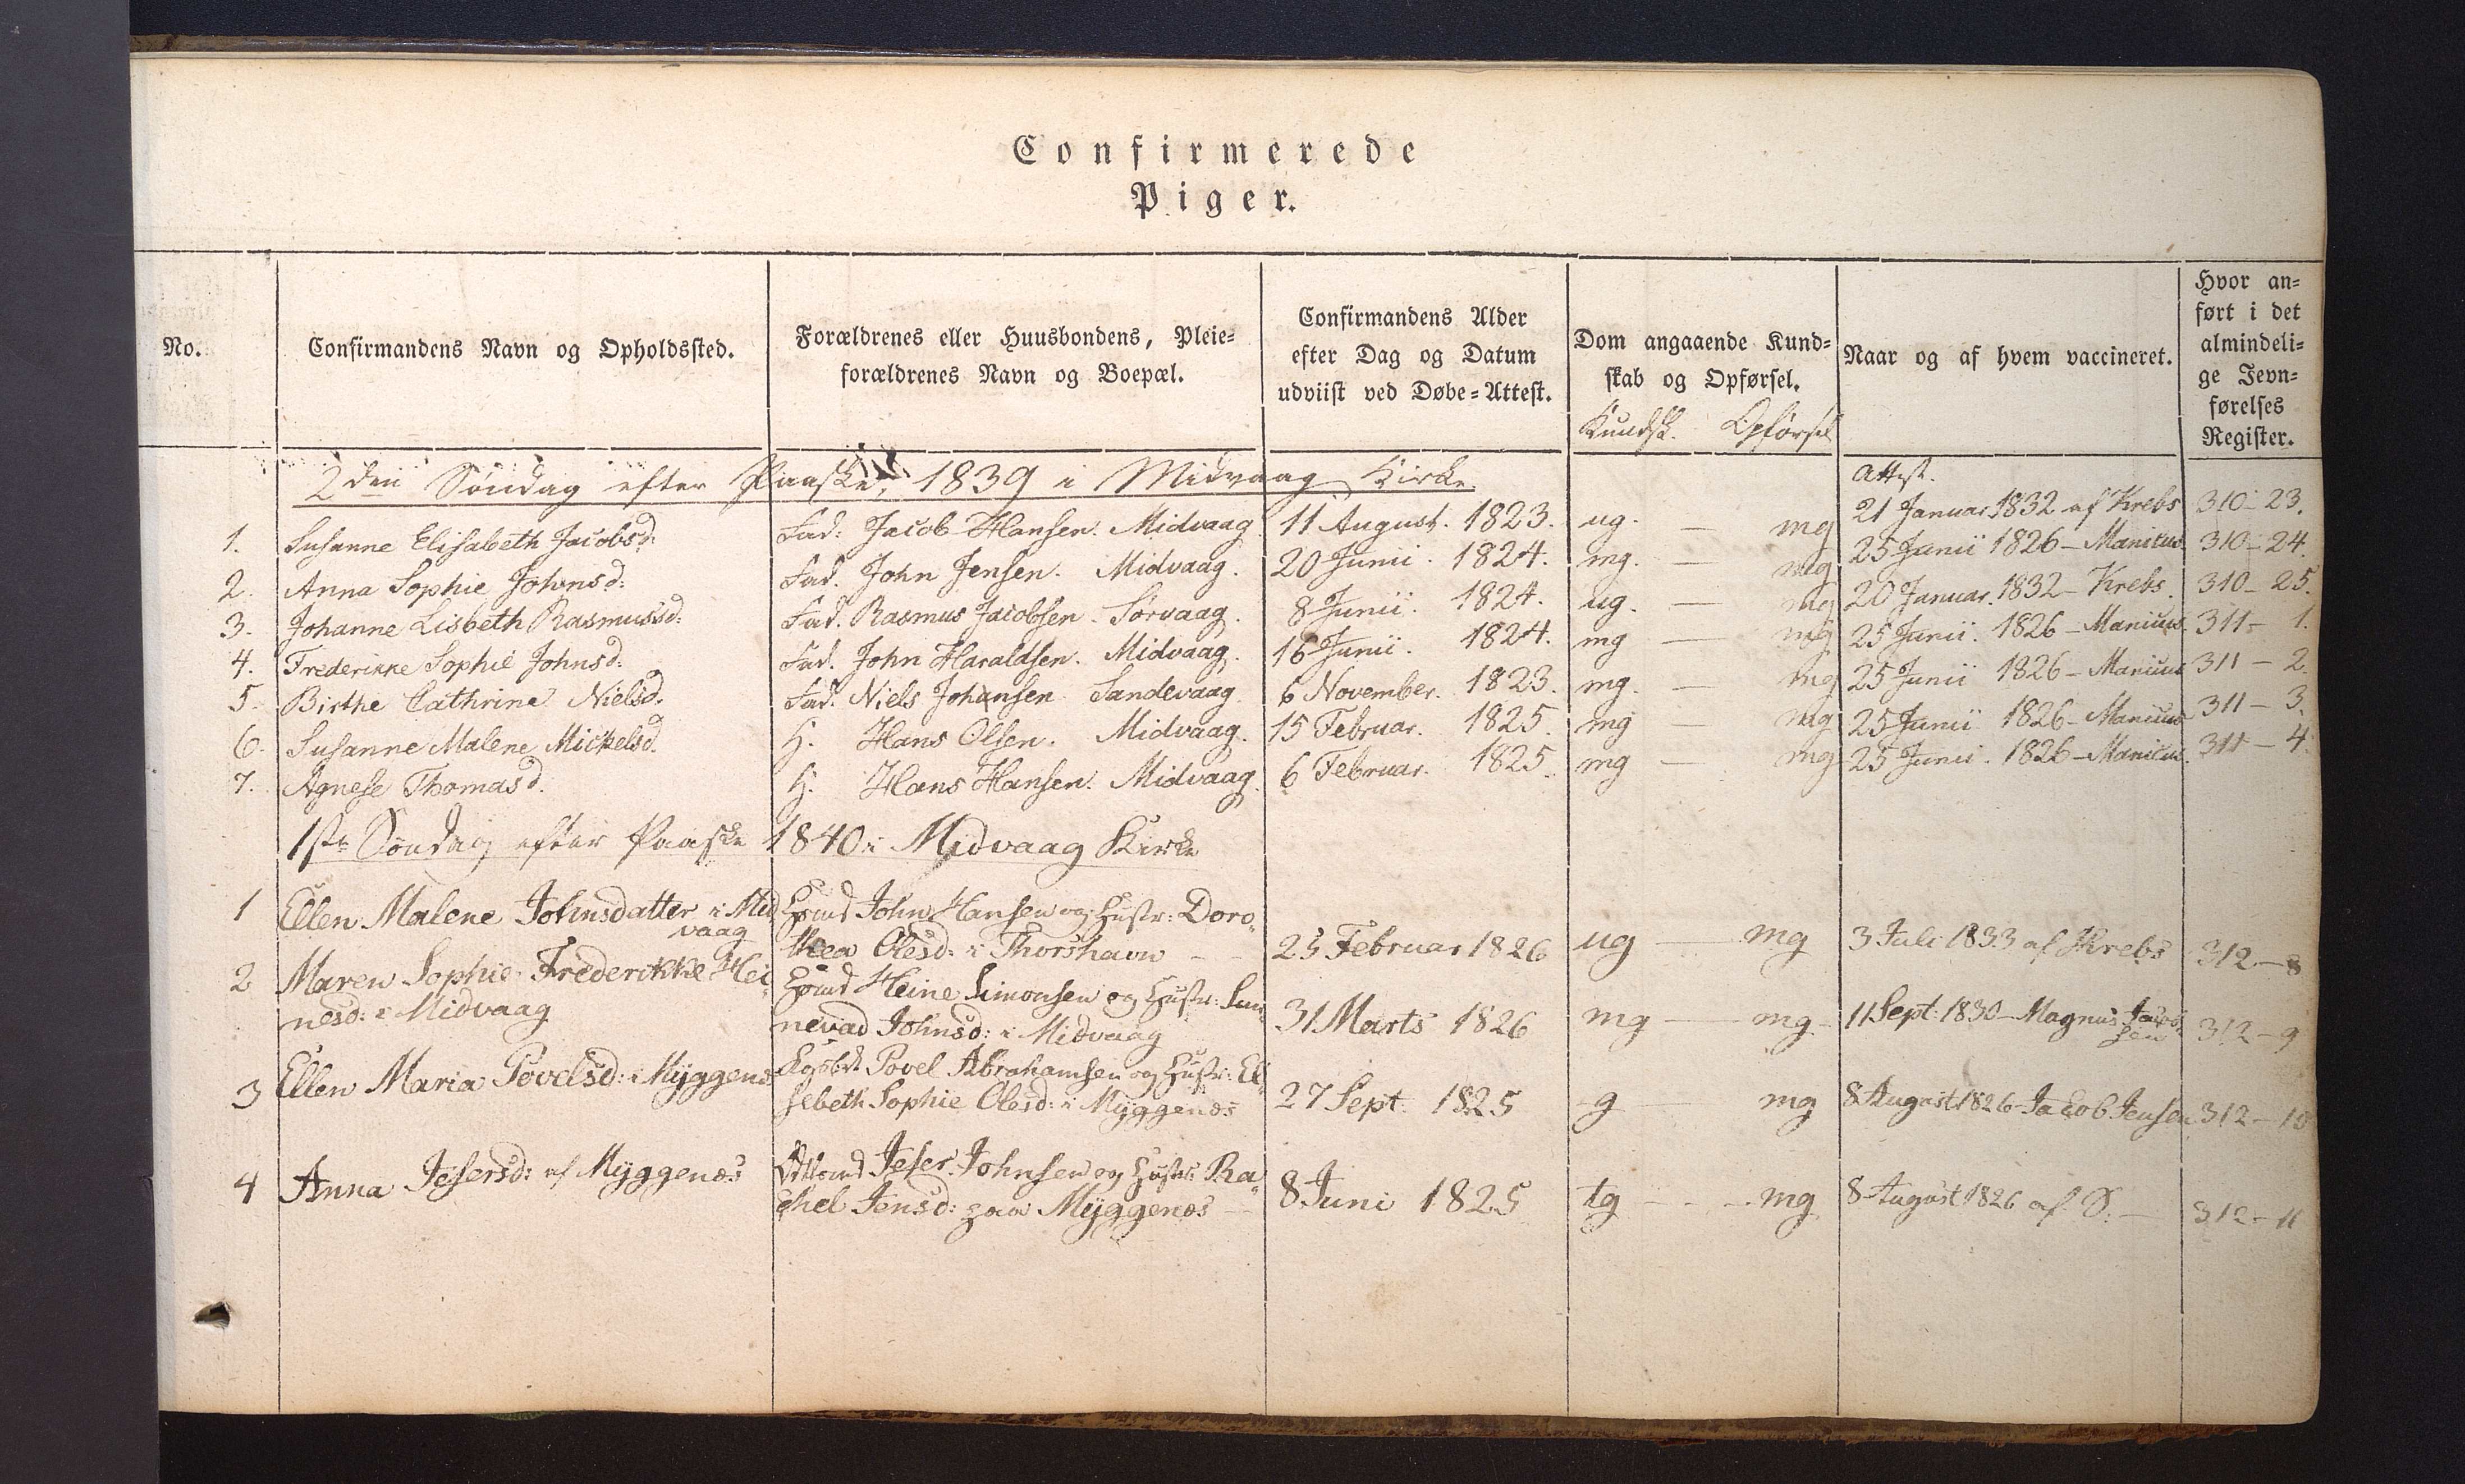 Confirmerede
Piger.
No.
Confirmandens Navn og Opholdssted.
Forældrenes eller Huusbondens, Pleie=
forældrenes Navn og Boepæl.
Confirmandens Alder
efter Dag og Datum
udviist ved Døbe=Attest.
Dom angaaende Kund=
skab og Opførsel.
Kundsk. Opførsel
Naar og af hvem vaccineret.
Hvor an=
ført i det
almindeli=
ge Jevn=
førelses
Register.
2den Søndag efter Paaske, 1839 i Midvaag Kirke.
Attest.
1. Susanne Elisabeth Jacobsd: Fad: Jacob Hansen. Midvaag 11 August. 1823. ug. — mg 21 Januar 1832 af Krebs 310-23.
2. Anna Sophie Johnsd: Fad. John Jensen. Midvaag. 20 Junii. 1824. mg. — mg 25 Junii 1826 - Manicus. 310-24.
3. Johanne Lisbeth Rasmussd: Fad. Rasmus Jacobsen. Sørvaag. 8 Junii. 1824. ug. — mg 20 Januar. 1832 - Krebs. 310-25.
4. Frederikke Sophie Johnsd: Fad. John Haraldsen. Midvaag. 16 Junii. 1824. mg — mg 25 Junii. 1826 - Manicus 311- 1.
5. Birthe Cathrine Nielsd. Fad. Niels Johansen Sandevaag 6 November. 1823. mg. — mg 25 Junii 1826 - Manicus 311 - 2.
6. Susanne Malene Mickelsd. H. Hans Olsen. Midvaag. 15 Februar. 1825. mg — mg 25 Junii 1826 - Manicus 311 - 3.
7. Agnese Thomasd. H. Hans Hansen. Midvaag. 6 Februar. 1825. mg — mg 25 Junii. 1826 - Manicus. 311 - 4.
1ste Søndag efter Paaske 1840 i Midvaag Kirke
1 Ellen Malene Johnsdatter i Mid
vaag
John Hansen og Hustr: Doro-
thea Olesd: i Thorshavn
25 Februar 1826 ug — mg 3 Juli 1833 af Krebs 312 - 8
2 Maren Sophie Frederikke Hei-
nesd: i Midvaag
Heine Simonsen og Hustr: Sun-
nevad Johnsd: i Midvaag
31 Marts 1826 mg — mg 11 Sept: 1830 - Magnus Jacob-
sen
312 - 9
3 Ellen Maria Povelsd: i Myggenæs
Povel Abrahamsen og Hustr: El-
sebeth Sophie Olesd: i Myggenæs
27 Sept: 1825 g — mg 8 August 1826 - Jacob Jensen 312 - 10
4 Anna Jesersd: af Myggenæs
Jeser Johnsen og Hustr: Ra-
chel Jensd: paa Myggenæs
8 Juni 1825 tg — mg 8 August 1826 af D: — 312 - 11